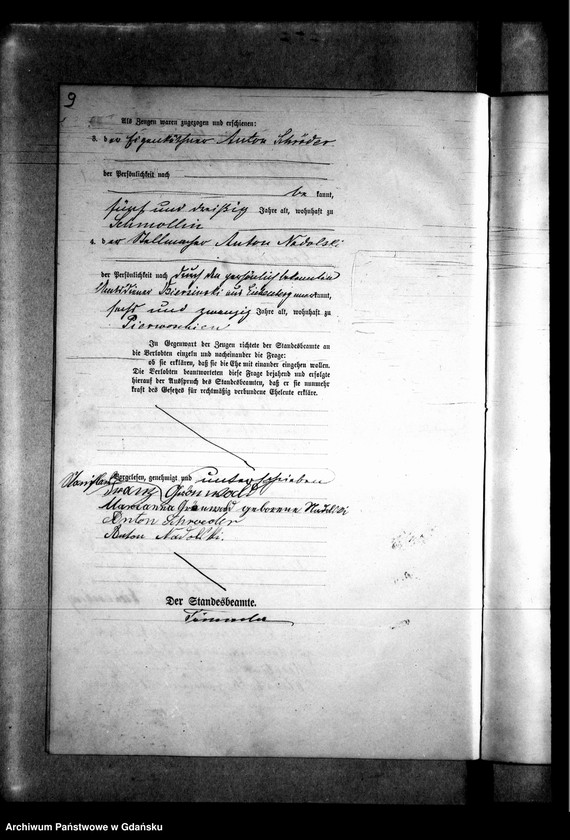 9
Als Zeugen waren zugezogen und erschienen:
3. der Eigenkäthner Anton Schröder
der Persönlichkeit nach
be kannt,
fünf und dreißig Jahre alt, wohnhaft zu
Schmollin
4. der Stellmacher Anton Nadolski
der Persönlichkeit nach durch den persönlich bekannten
Amtsdiener aus kannt,
sechs und zwanzig Jahre alt, wohnhaft zu
Pierwoschien
In Gegenwart der Zeugen richtete der Standesbeamte an
die Verlobten einzeln und nacheinander die Frage:
ob sie erklären, daß sie die Ehe mit einander eingehen wollen.
Die Verlobten beantworteten diese Frage bejahend und erfolgte
hierauf der Ausspruch des Standesbeamten, daß er sie nunmehr
kraft des Gesetzes für rechtmäßig verbundene Eheleute erkläre.
Vorgelesen, genehmigt und unterschrieben
Franz Grönwald
Marianna Grönwald geborene Nadolski
Anton Schroeder
Anton Nadolski.
Der Standesbeamte.
Archiwum Państwowe w Gdańsku